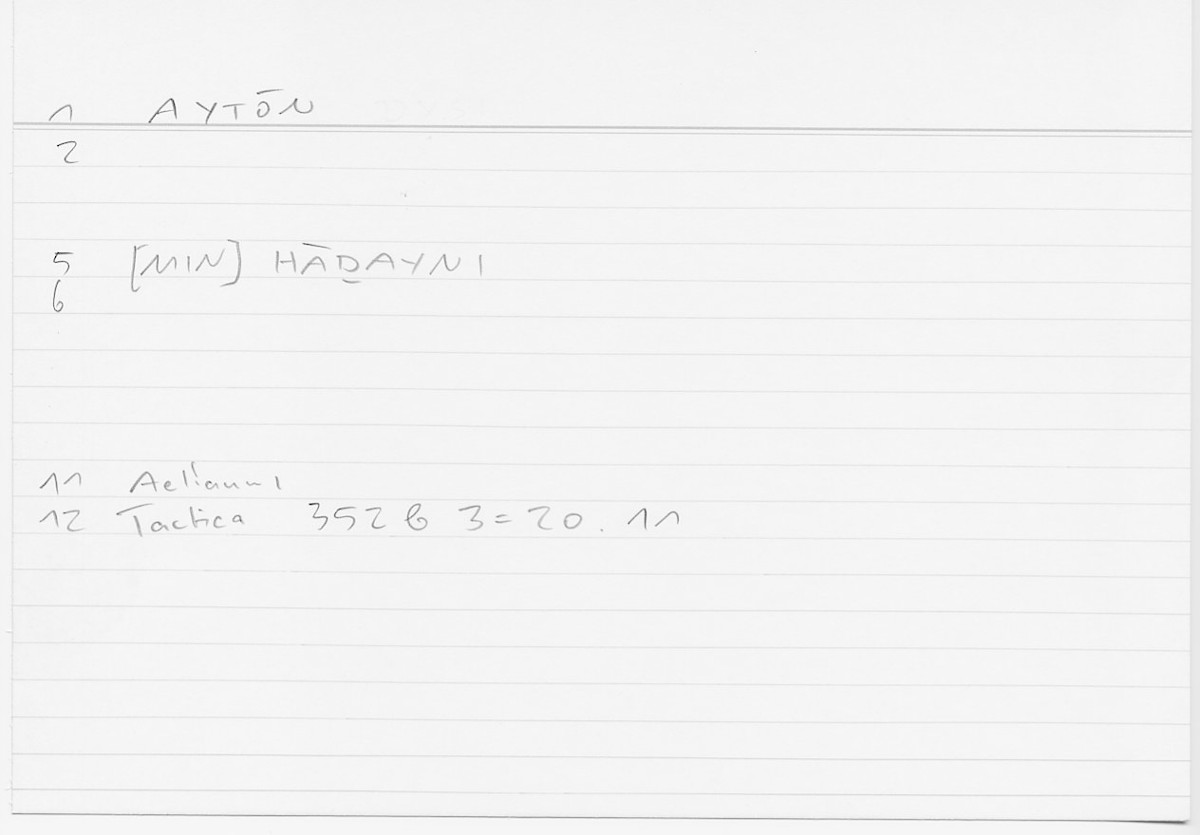 1 AYTŌN
2
5 [MIN] HĀḎAYNI
6
11 Aeliani
12 Tactica 352 b 3 = 20. 11